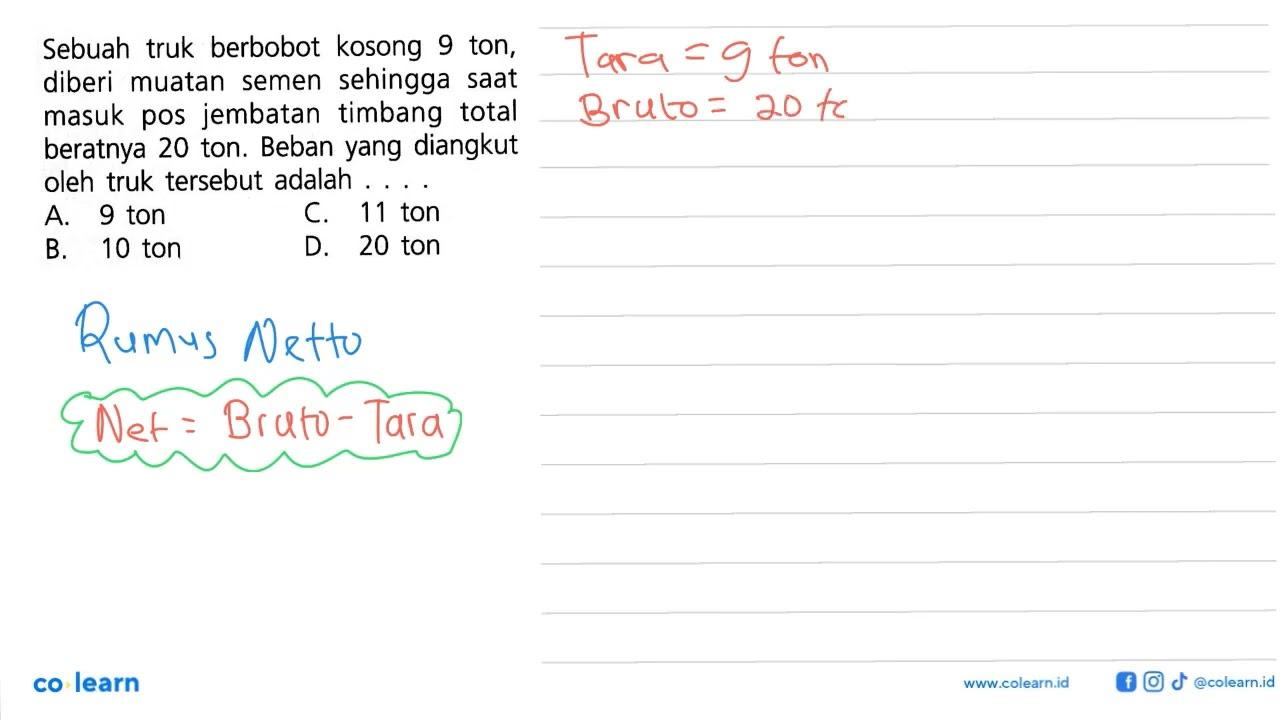 Sebuah truk berbobot kosong 9 ton,
diberi muatan semen sehingga saat
masuk pos jembatan timbang total
beratnya 20 ton. Beban yang diangkut
oleh truk tersebut adalah . . . .
A. 9 ton C. 11 ton
B. 10 ton D. 20 ton
Rumus Netto
Net = Bruto - Tara
Tara = 9 ton
Bruto = 20 to
co learn
www.colearn.id @colearn.id